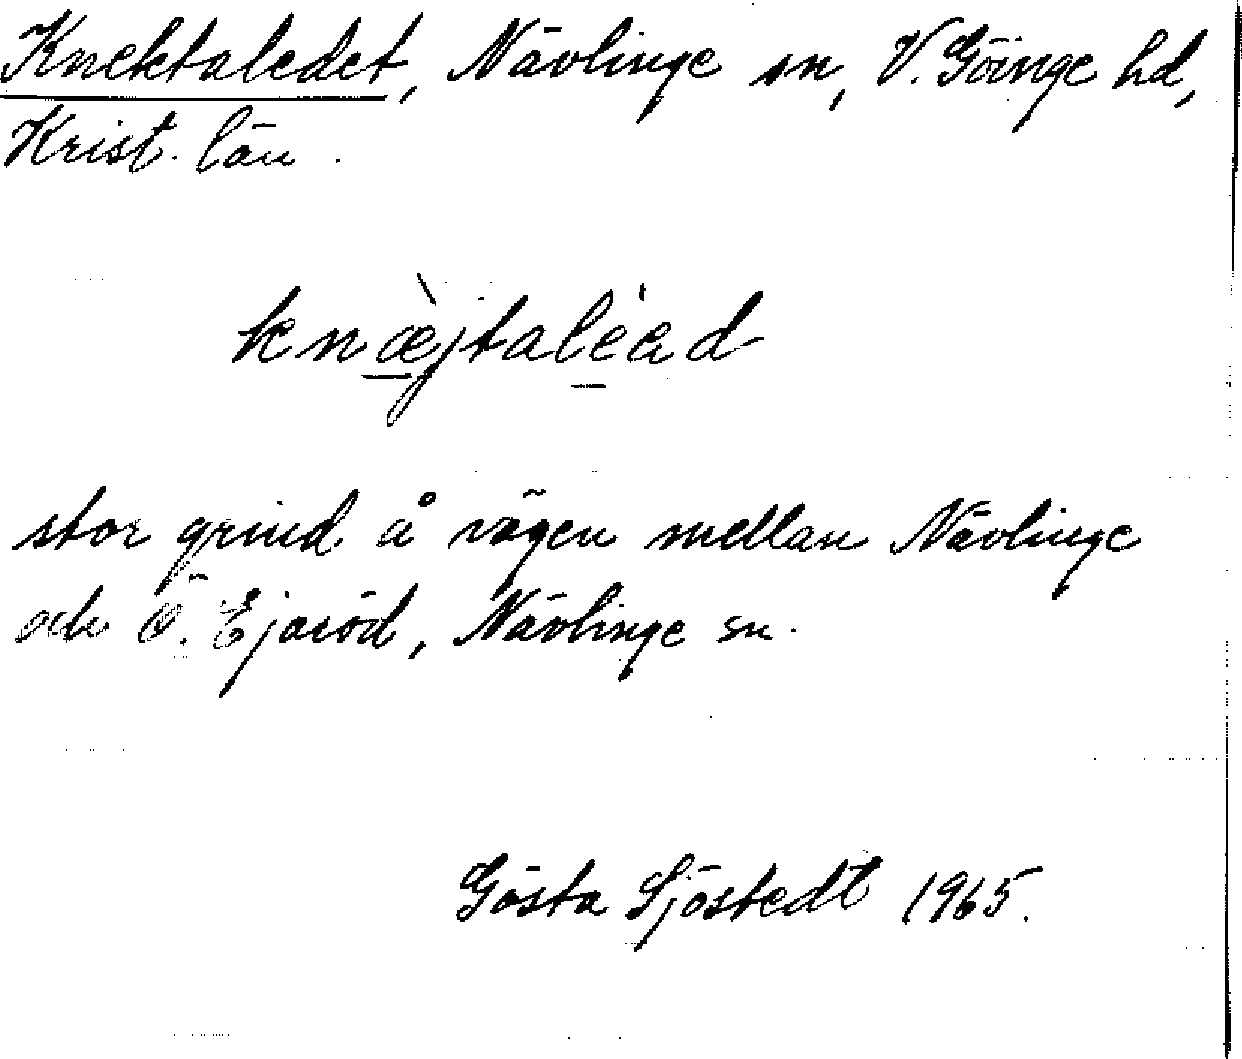 Knektaledet, Nävlinge sn, V. Göinge hd,
Krist. län.
knæ̀jtaléad
stor grind å vägen mellan Nävlinge
och Ö. Ejaröd, Nävlinge sn.
Gösta Sjöstedt 1965.